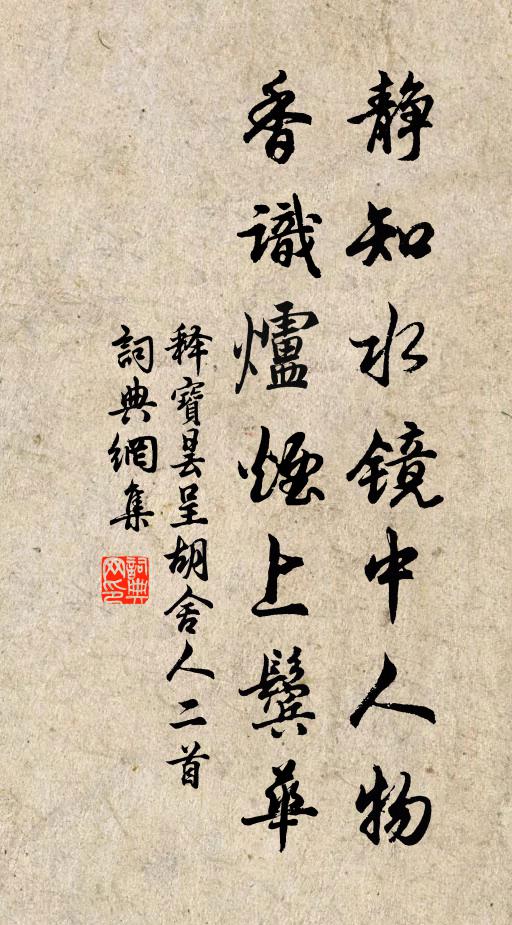 静知水镜中人物
香識爐煙上鬓華
释寶昙呈胡舍人二首
詞典網集
詞典
网印